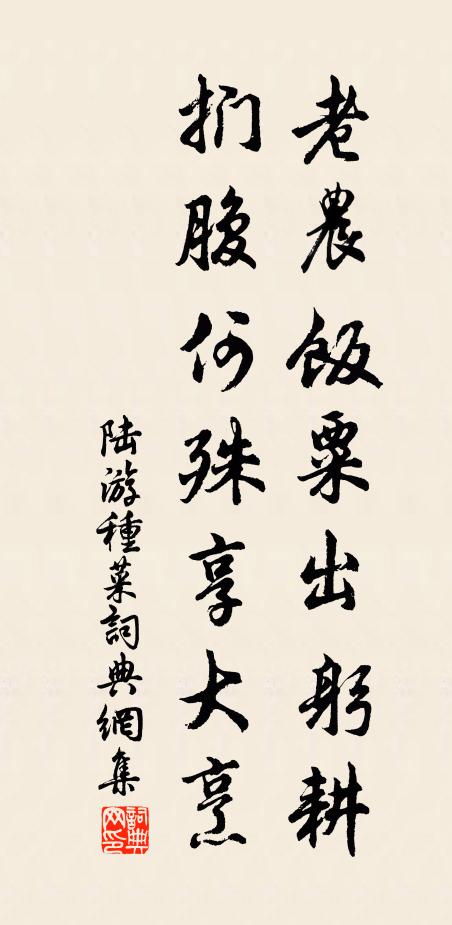 老農飯粟出躬耕
捫腹何殊享大烹
陆游種菜詞典網集
詞典網印